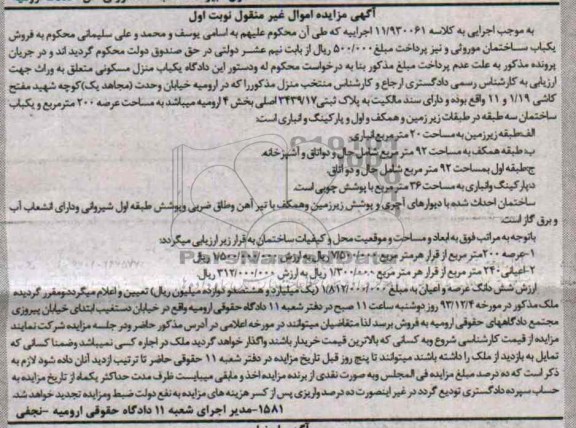 آگهی مزایده اموال غیر منقول نوبت اول
به موجب اجرایی به کلاسه ۱۱/۹۳۰۰۶۱ اجراییه که طی آن محکوم علیهم به اسامی یوسف و محمد و علی سلیمانی محکوم به فروش
یکباب ساختمان موروثی و نیز پرداخت مبلغ ۵۰۰/۰۰۰ ریال از بابت نیم عشر دولتی در حق صندوق دولت محکوم گردیده اند و در جریان
پرونده مذکور به علت عدم پرداخت مبلغ مذکور بنا به درخواست محکوم له ودستور این دادگاه یکباب منزل مسکونی متعلق به وراث جهت
ارزیابی به کارشناس رسمی دادگستری ارجاع و کارشناس منتخب منزل مذکوررا که در ارومیه خیابان وحدت (مجاهد یک)کوچه شهید مفتح
کاشی ۱/۱۹ و ۱۱ واقع بوده و دارای سند مالکیت به پلاک ثبتی ۲۴۳۹/۱۷ اصلی بخش ۴ ارومیه میباشد به مساحت عرصه ۲۰۰ مترمربع و یکباب
ساختمان سه طبقه در طبقات زیر زمین و همکف و اول و پارکینگ و انباری است:
الف-طبقه زیرزمین به مساحت ۲۰ متر مربع انباری
ب: طبقه همکف به مساحت ۹۲ متر مربع شامل حال و دو اتاق و آشپزخانه
ج-طبقه اول بمساحت ۹۲ متر مربع شامل حال و دو اتاق
د-پارکینگ وانباری به مساحت ۳۶ متر مربع با پوشش چوبی است.
ساختمان احداث شده با دیوارهای آجری و پوشش زیرزمین وهمکف با تیر آهن وطاق ضربی وپوشش طبقه اول شیروانی ودارای انشعاب آب
و برق گاز است.
باتوجه به مراتب فوق به ابعاد و مساحت و موقعیت محل و کیفیات ساختمان به قرار زیر ارزیابی میگردد:
۱-عرصه ۲۰۰ متر مربع از قرار هرمتر مربع ۷/۵۰۰/۰۰۰ ریال به ارزش ۱/۵۰۰/۰۰۰/۰۰۰ ریال
۲-اعیانی ۲۴۰ متر مربع از قرار هر متر مربع ۱/۳۰۰/۰۰۰ ریال به ارزش ۳۱۲/۰۰۰/۰۰۰ ریال
ارزش شش دانگ عرصه و اعیان به مبلغ ۱/۸۱۲/۰۰۰/۰۰۰ (یک میلیارد و هشتصدو دوازده میلیون ریال) تعیین و اعلام میگردد ومقرر گردیده
ملک مذکور در مورخه ۹۳/۱۲/۴ روز دوشنبه ساعت ۱۱ صبح در دفتر شعبه ۱۱ دادگاه حقوقی ارومیه واقع در خیابان دستغیب ابتدای خیابان پیروزی
مجتمع دادگاههای حقوقی ارومیه به فروش برسد لذا متقاضیان میتوانند در مورخه اعلامی در آدرس مذکور حاضر ودر جلسه مزایده شرکت نمایند
مزایده از قیمت کارشناسی شروع وبه کسانی که بالاترین قیمت خریدار باشند واگذار خواهد گردید ملک در اجاره کسی نمیباشد وضمنا کسانی که
تمایل به بازدید از ملک را داشته باشند میتوانند تا پنج روز قبل تاریخ مزایده در دفتر شعبه ۱۱ حقوقی حاضر تا ترتیب ازدید آنان داده شود لازم به
ذکر است که ده درصد مبلغ مزایده فی المجلس وبه صورت نقدی از برنده مزایده اخذ و مابقی میبایست ظرف مدت حداکثر یکماه از تاریخ مزایده به
حساب سپرده دادگستری تودیع گردد در غیر اینصورت ده درصد واریزی پس از کسر هزینه های مزایده به نفع دولت ضبط ومزایده تجدید خواهد شد.
۱۵۸۱-مدیر اجرای شعبه ۱۱ دادگاه حقوقی ارومیه -نجفی